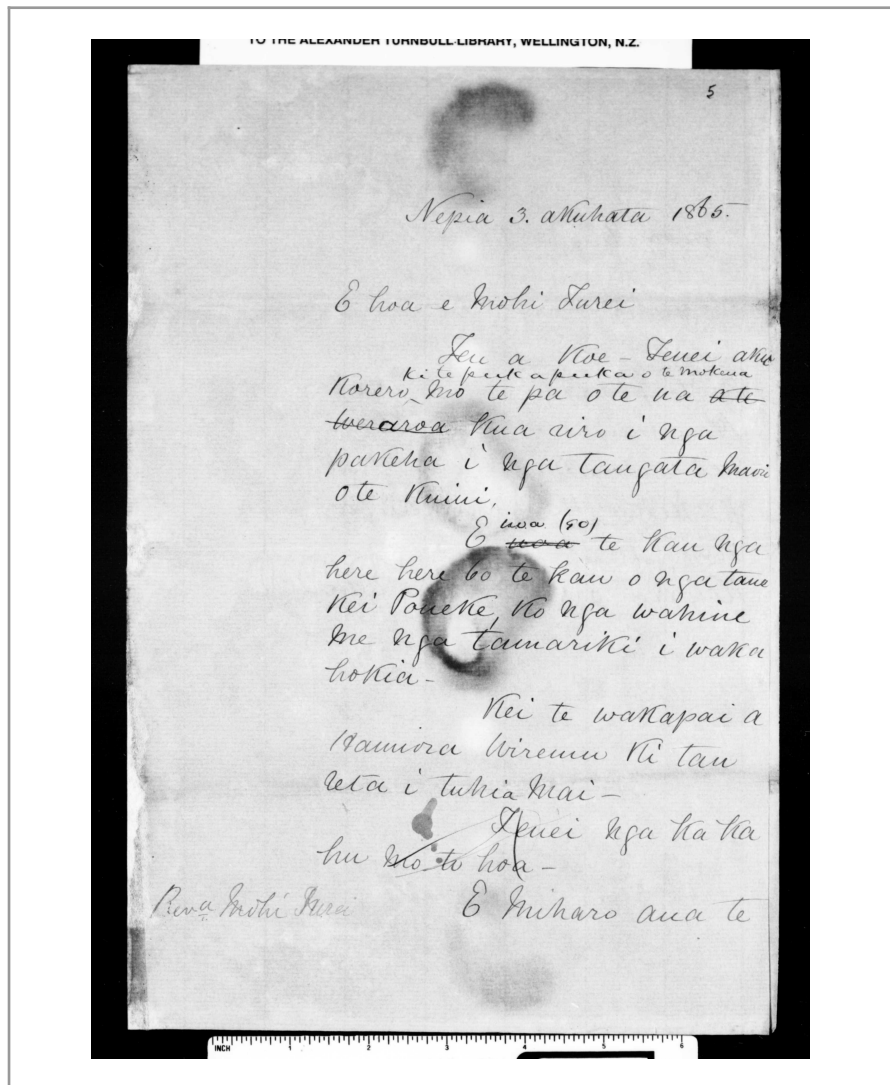 TO THE ALEXANDER TURNBULL LIBRARY, WELLINGTON, N.Z.
5
Nepia 3. akuhata 1865.
E hoa e Mohi Turei
Ten a koe - Tenei aku
ki te pukapuka o te mokena
Korero, mo te pa o te na o te
Weraroa Kua riro i nga
pakeha i nga tangata Maori
o te Kuini,
inoa (50)
E noa te Kau nga
here here 60 te kau o nga tane
Kei Poneke, Ko nga wahine
me nga tamariki i waka
hokia -
Kei te wakapai a
Hamiora Wiremu Ki tau
reta i tuhia Mai -
Tenei nga ka ka
hu mo to hoa -
E Miharo ana te
Mohi Turei
INCH 1 2 3 4 5 6